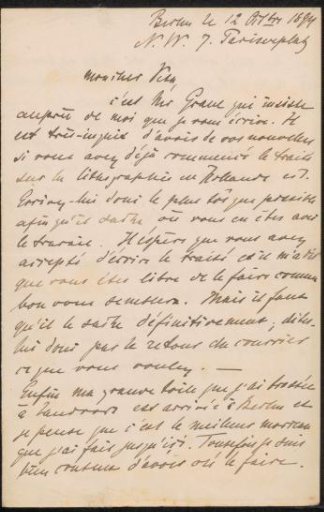 Berlin le 12 Octbre 1894
N. W. 7. Pariserplatz
Mon cher Veth
c'est Mr Graul qui insiste
auprès de moi que je vous écrive. Il
est très-inquiet d'avoir de vos nouvelles
si vous avez déjà commencé le traité
sur la lithographie en Hollande etc.
Ecrivez-lui donc le plus tôt que possible
afin qu'il sache où vous en êtes avec
le travail. Il espère que vous avez
accepté d'écrire le traité et il m'a dit
que vous êtes libre de le faire comme
bon vous semblera. Mais il faut
qu'il le sache définitivement, dites-
lui donc par le retour du courrier
ce que vous voulez. —
Enfin ma grande toile que j'ai
à Zandvoort est arrivée à Berlin et
je pense que c'est le meilleur morceau
que j'ai fais jusqu'ici. Toutefois je suis
bien content d'avoir osé le faire.